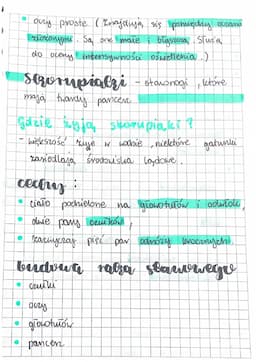 • oczy proste (znajdują się pomiędzy oczami
złożonymi. Są one małe i błyszczą. Służą
do oceny intensywności oświetlenia.)
skorupiaki - stawonogi, które
mają twardy pancerz
gdzie żyją skorupiaki?
- większość żyje w wodzie, niektóre gatunki
zasiedlają środowiska lądowe.
cechy:
• ciało podzielone na głowotułów i odwłok,
• dwie pary czułków,
• zazwyczaj pięć par odnóży krocznych.
budowa raka stawowego
• czułki
• oczy
• głowotułów
• pancerz